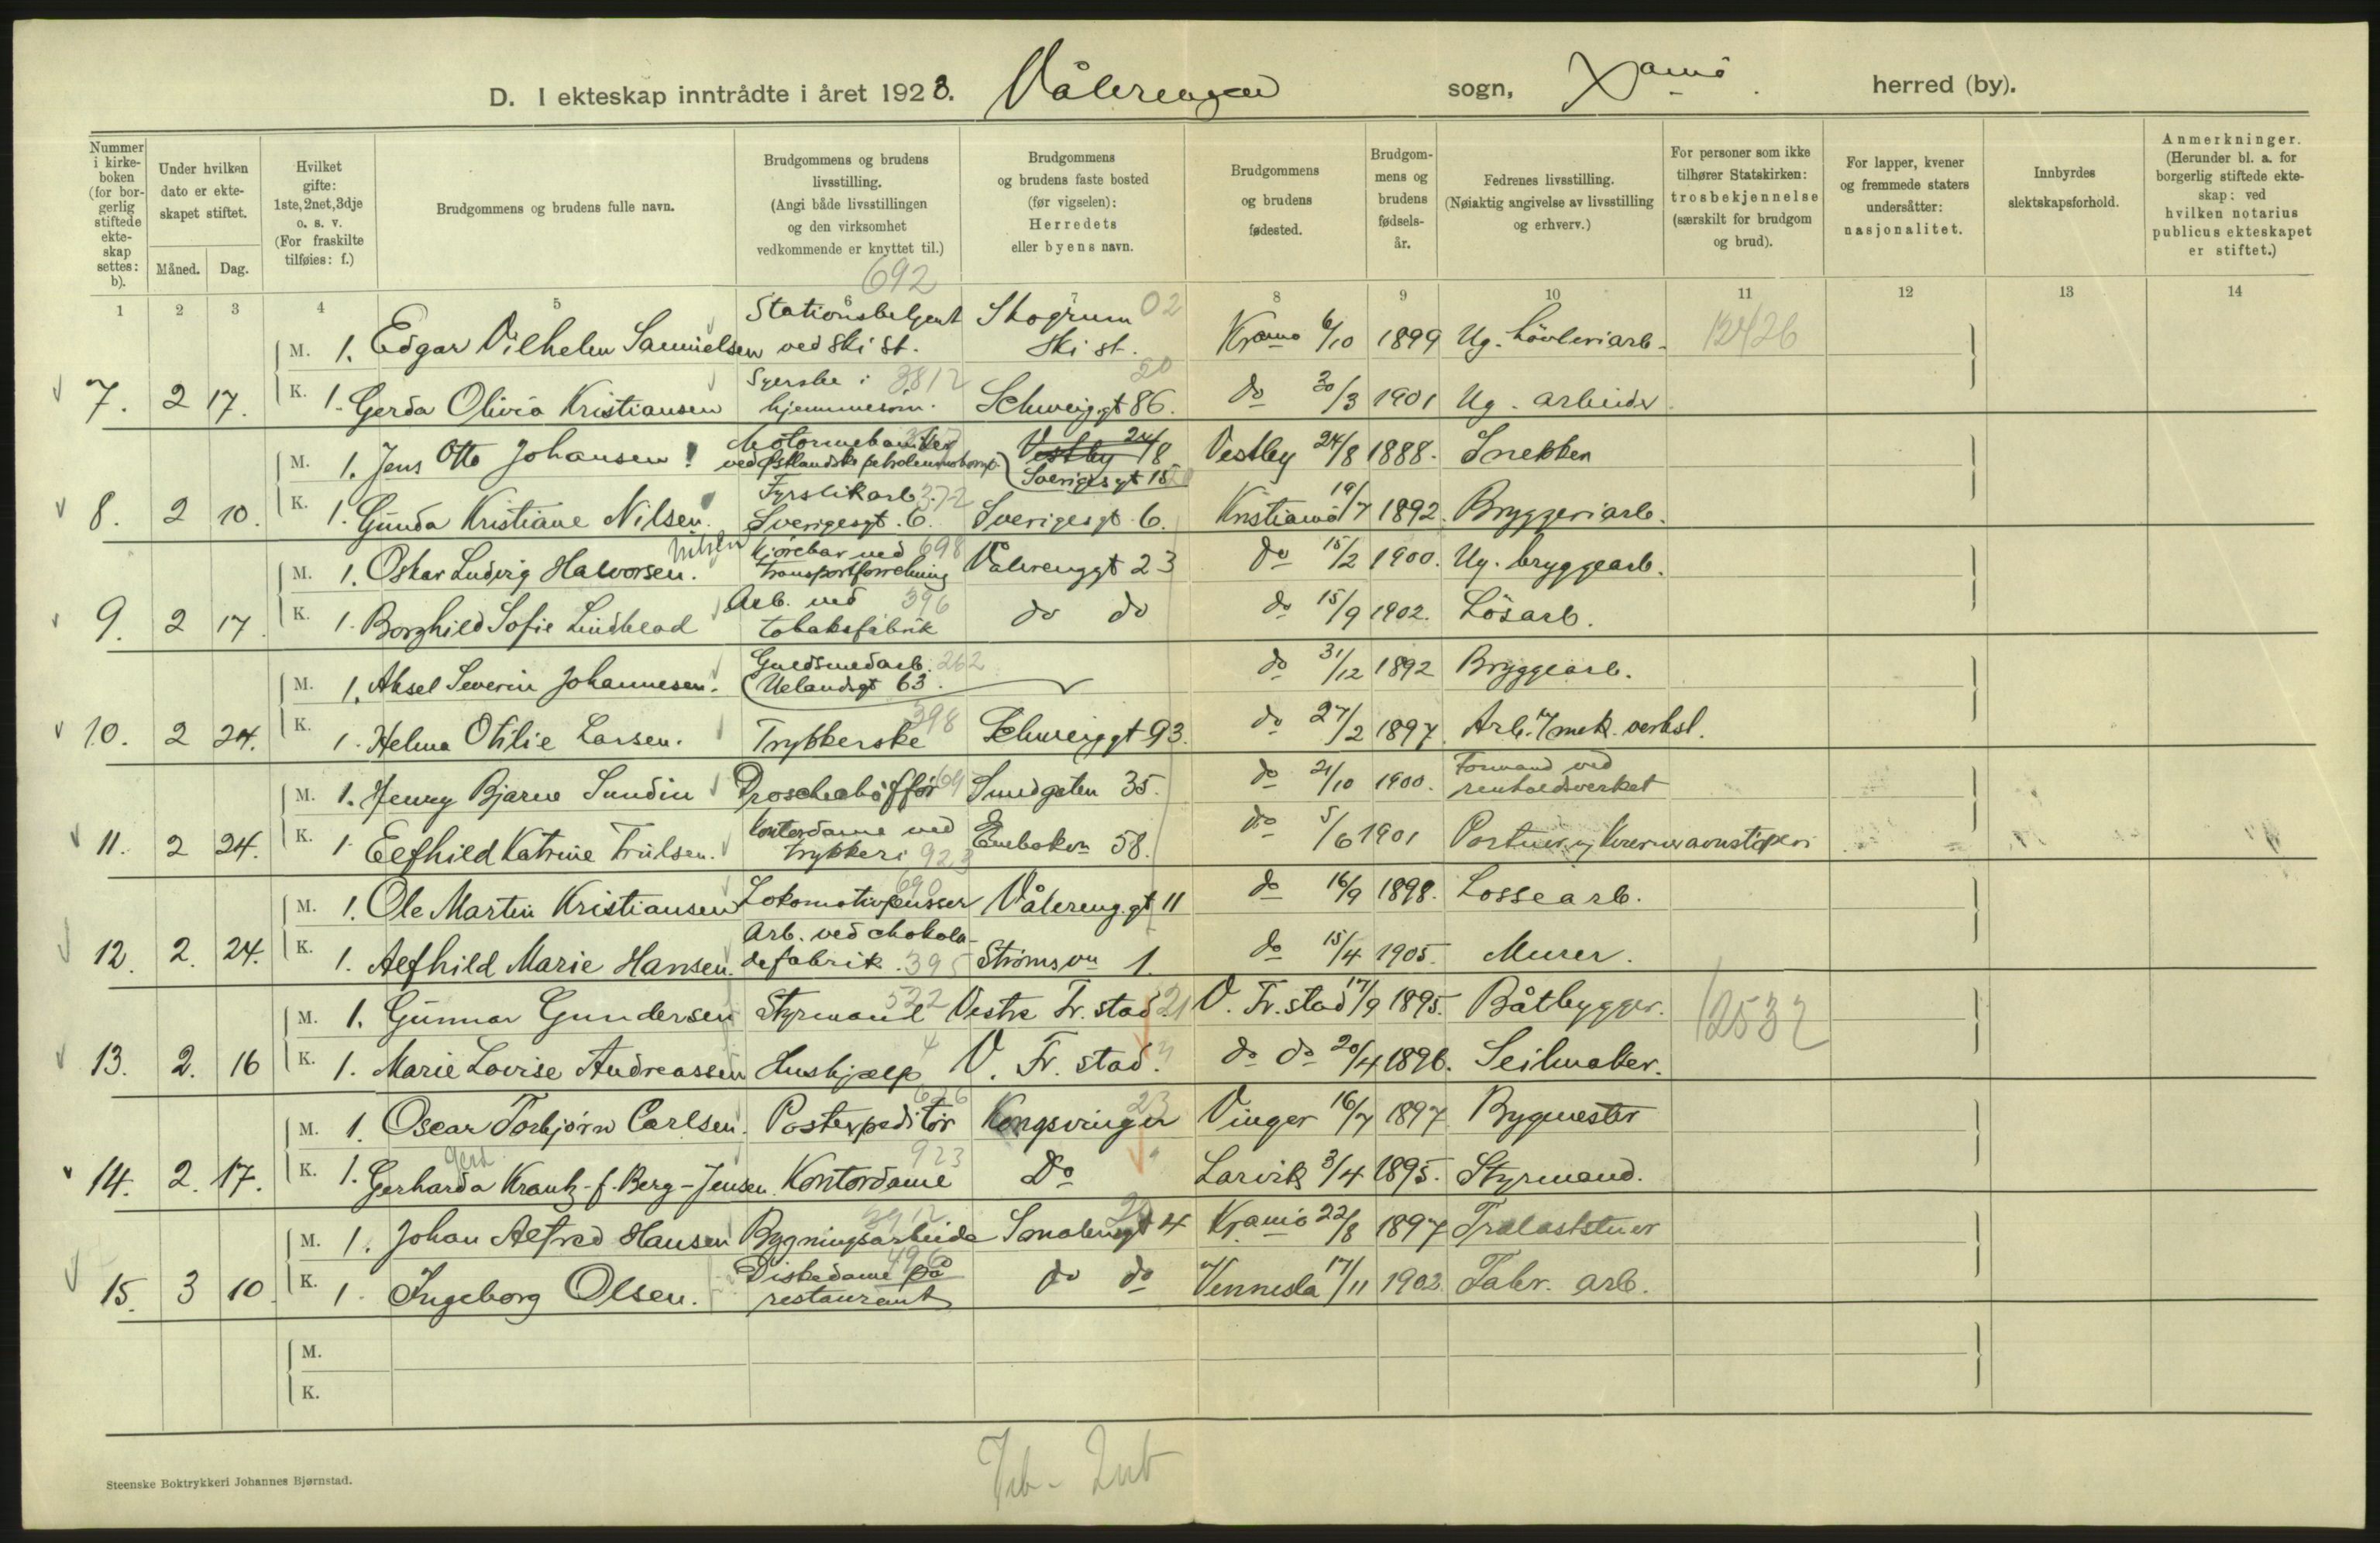 D. I ekteskap inntrådte i året 1923. Vålerengen sogn, Xania herred (by).
Nummer i kirke-boken (for bor-gerlig stiftede ekte-skap settes: b).
Under hvilken dato er ekte-skapet stiftet.
Måned. Dag.
Hvilket gifte: 1ste, 2net, 3dje o. s. v. (For fraskilte tilføies: f.)
Brudgommens og brudens fulle navn.
Brudgommens og brudens livsstilling. (Angi både livsstillingen og den virksomhet vedkommende er knyttet til.)
Brudgommens og brudens faste bosted (før vigselen): Herredets eller byens navn.
Brudgommens og brudens fødested.
Brudgom-mens og brudens fødsels-år.
Fedrenes livsstilling. (Nøiaktig angivelse av livsstilling og erhverv.)
For personer som ikke tilhører Statskirken: trosbekjennelse (særskilt for brudgom og brud).
For lapper, kvener og fremmede staters undersåtter: nasjonalitet.
Innbyrdes slektskapsforhold.
Anmerkninger. (Herunder bl. a. for borgerlig stiftede ekte-skap: ved hvilken notarius publicus ekteskapet er stiftet.)
1 2 3 4 5 6 7 8 9 10 11 12 13 14
692
M. 1. Edgar Vilhelm Samuelsen Stationsbetjent ved Ski st. Skogrum Ski st. 02 Krania 6/10 1899 Ug. 12426
7. 2 17. K. 1. Gerda Olivia Kristiansen Syerske i hjemmesøm. 3812 Schweiggt 86. 20 do 30/3 1901 Ug. arbeider
M. 1. Jens Otto Johansen Vestby Sverigesgt 18 Vestby 24/8 1888. Snekker
8. 2 10. K. 1. Gunda Kristiane Nilsen. Fyrstikarb. 372 Sverigesgt. 6. Sverigesgt. 6. Kristiania 19/7 1892. Bryggeriarb.
Nilsen
M. 1. Oskar Ludvig Halvorsen. Kjørekar ved transportforretning 698 Vålerenggt 23 do 15/2 1900. Ug. bryggearb.
9. 2 17 K. 1. Borghild Sofie Lindblad Arb. ved tobaksfabrik 396 do do do 15/9 1902. Løsarb.
M. 1. Aksel Severin Johannesen. Guldsmedarb. 262 Uelandsgt 63. do 31/12 1892 Bryggearb.
10. 2 24. K. 1. Helma Otilie Larsen. Trykkerske 398 Schweiggt 93. do 27/2 1897. Arb. v/ mek. verkst.
M. 1. Henry Bjarne Sundin Smedgaten 35. do 21/10 1900. Formand ved renholdsverket
11. 2 24. K. 1. Eefhild Katrine Trulsen. Kontordame ved trykkeri 923 Enebakvn 58. do 5/6 1901 Portner
M. 1. Ole Martin Kristiansen Lokomotivpusser 690 Vålereng.gt 11 do 16/9 1898. Lossearb.
12. 2. 24. K. 1. Alfhild Marie Hansen. Arb. ved chokola-defabrik. 395 Strømsvn 1. do 15/4 1905. Murer.
M. 1. Gunnar Gundersen Styrmand 532 Vestre Fr. stad. 21 V. Fr. stad 17/9 1895. Båtbygger. 12532
13. 2. 16 K. 1. Marie Lovise Andreassen Hushjælp 4 V. Fr. stad. do do 20/4 1896. Seilmaker.
M. 1. Oscar Torbjørn Carlsen. Postexpeditør 626 Kongsvinger 23 Vinger 16/7 1897. Bygmester
14. 2. 17. K. 1. Gerharda Krantz f. Berg-Jensen. Kontordame 923 Do Larvik 3/4 1895. Styrmand.
M. 1. Johan Alfred Hansen Bygningsarbeide Smålensgt 4 20 Krania 22/8 1897 Trælaststuer
15. 3 10 K. 1. Ingeborg Olsen. Diskedame på restaurant 496 do do Vennesla 17/11 1902. Fabr. arb.
M.
K.
Steenske Boktrykkeri Johannes Bjørnstad.